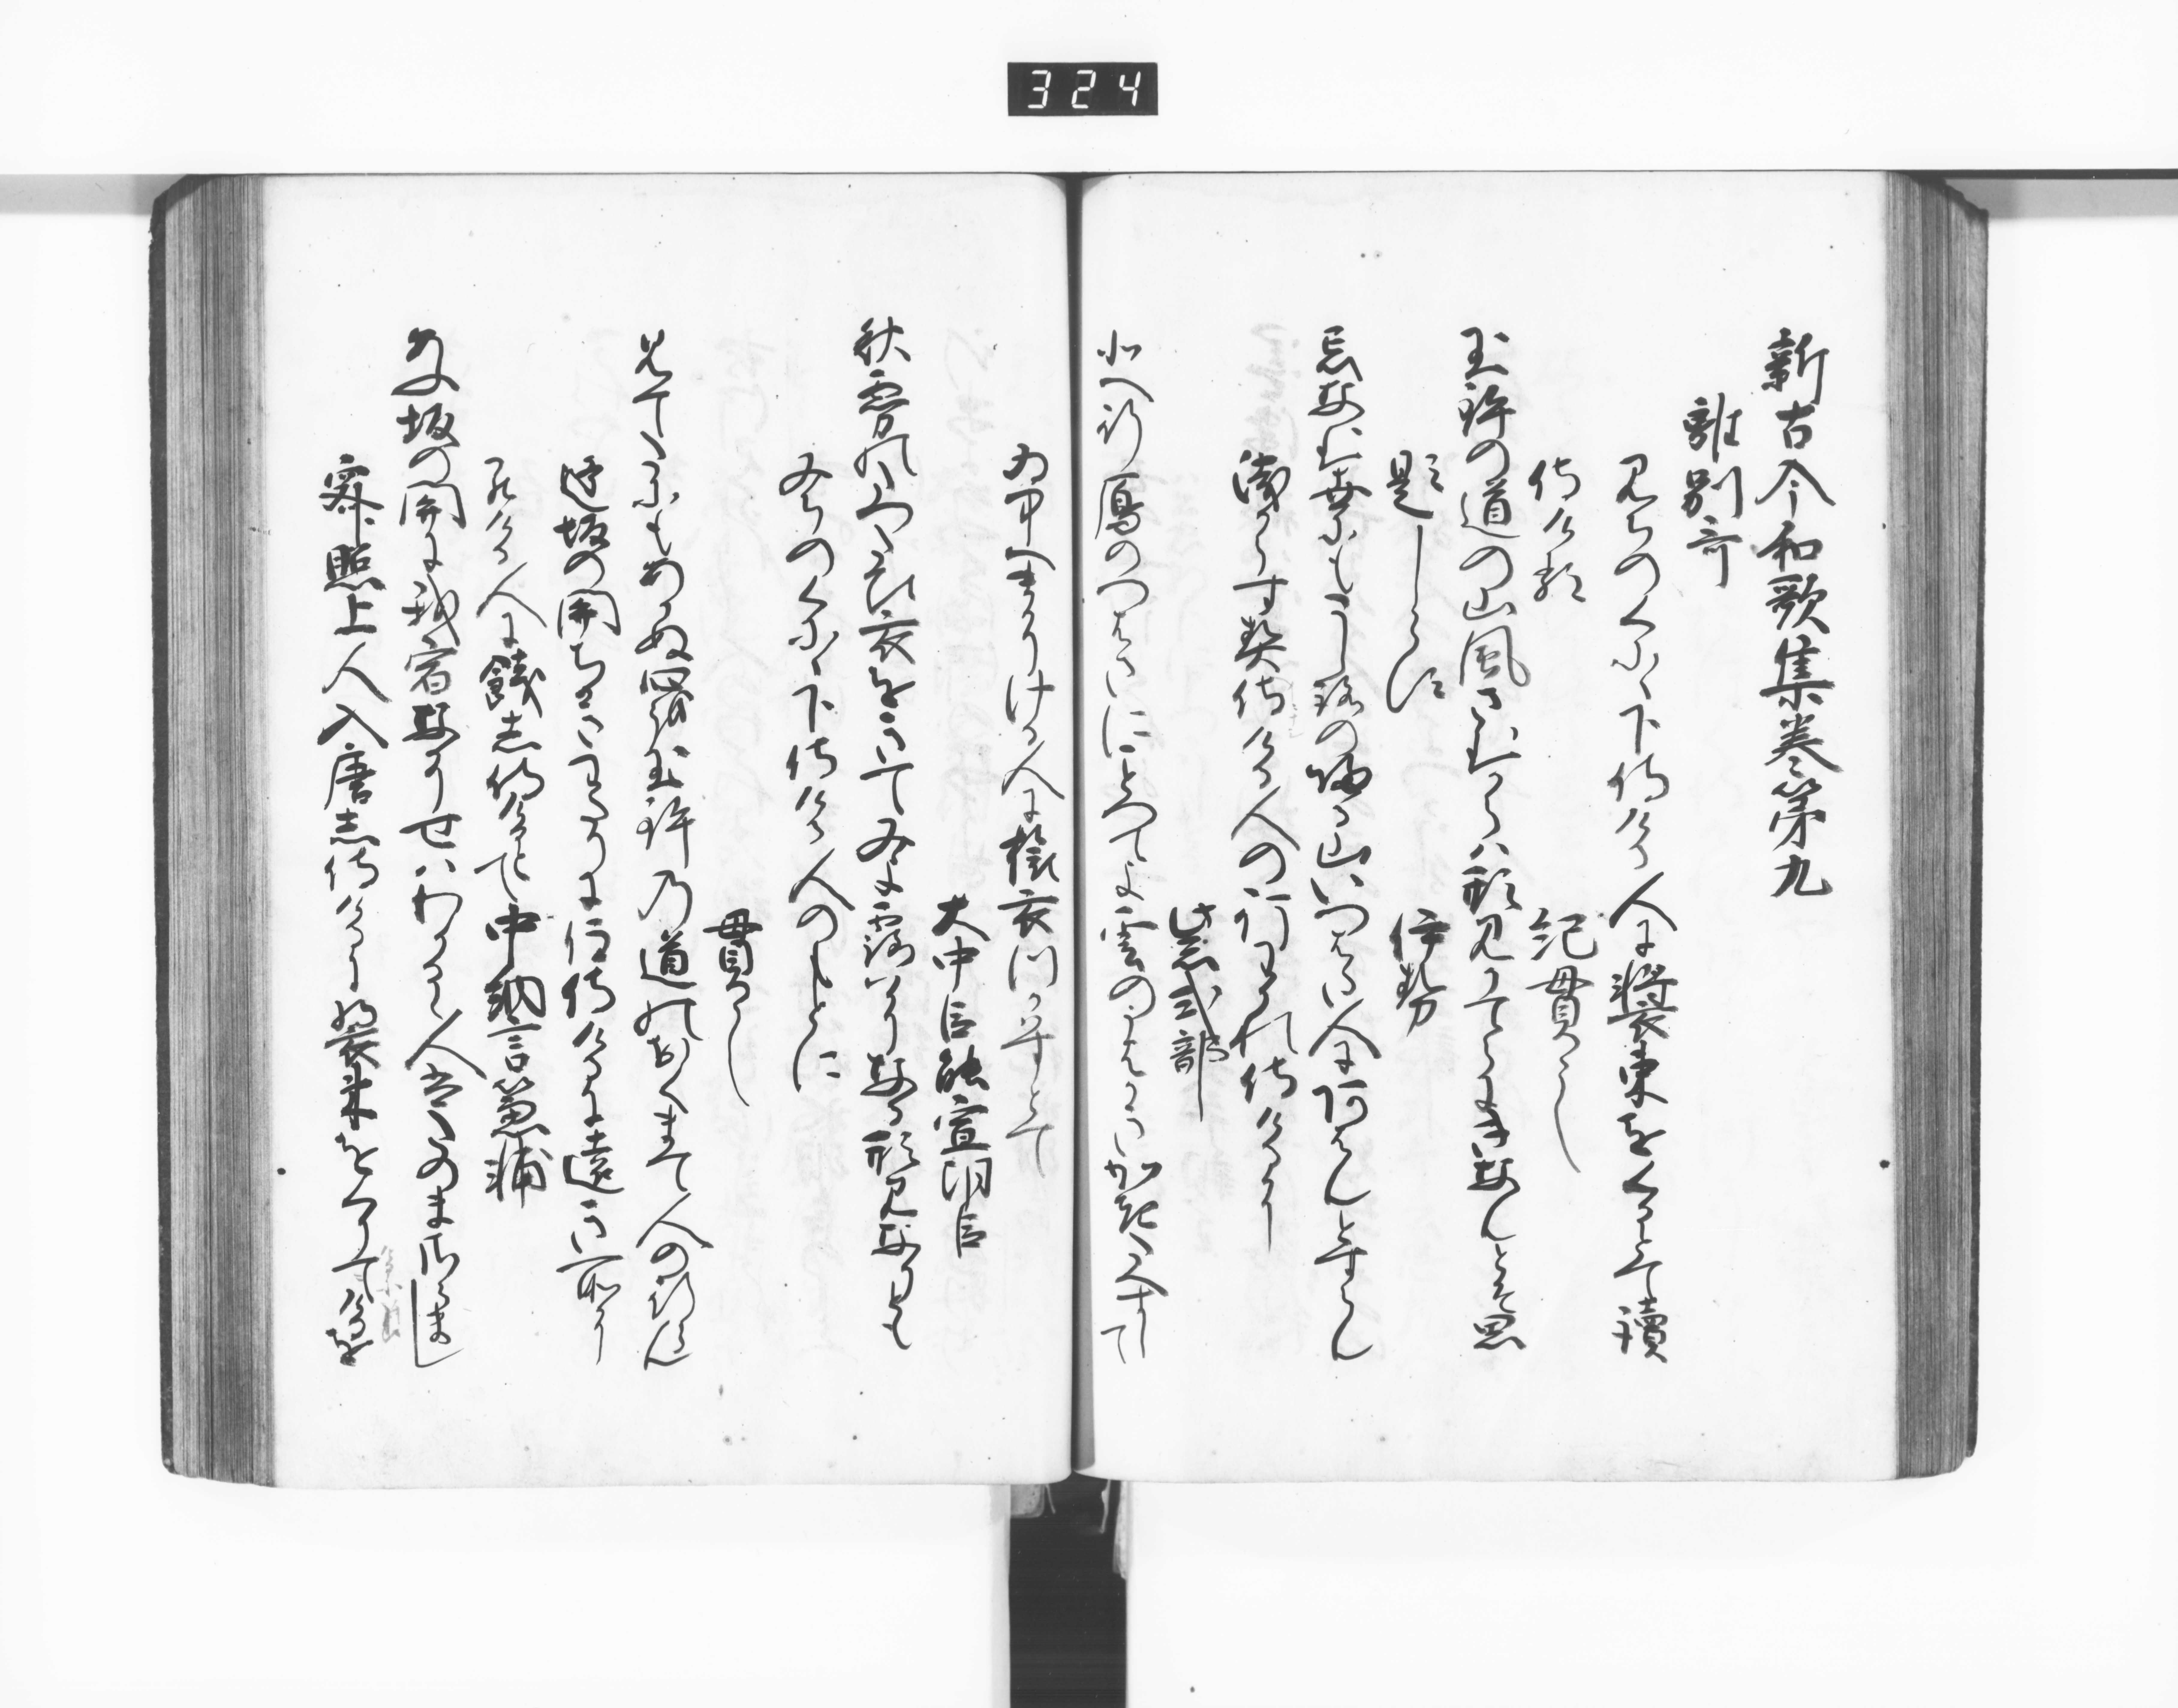 324
新古今和歌集巻第九
離別哥
みちのくに下侍ける人に装束をくるとて讀
侍ける　紀貫之
玉鉾の道の山風さむからは形見かてらにきなんとそ思
題しらす　伊勢
忘なむ世にもこし路の帰る山いつはた人にあはんとすらん
浅からす契侍ける人の行わかれ侍けるに
紫式部
北へ行鳫のつはさにことつてよ雲のうはかきかきたえすして
ゐ中へまかりける人に旅衣つかはすとて
大中臣能宣朝臣
秋霧のたつ旅衣をきて見よ露はかりなる形見なりとも
みちのくに下侍ける人のもとに
貫之
見てたにもあかぬ心に玉鉾の道のおくまて人の行らん
逢坂の関ちかきわたりに住侍けるに遠き所に
まかりける人に餞し侍とて　中納言兼輔
あふ坂の関に我宿なかりせはわかるる人はたのまさらまし
寂照上人入唐し侍けるに装束をくりて